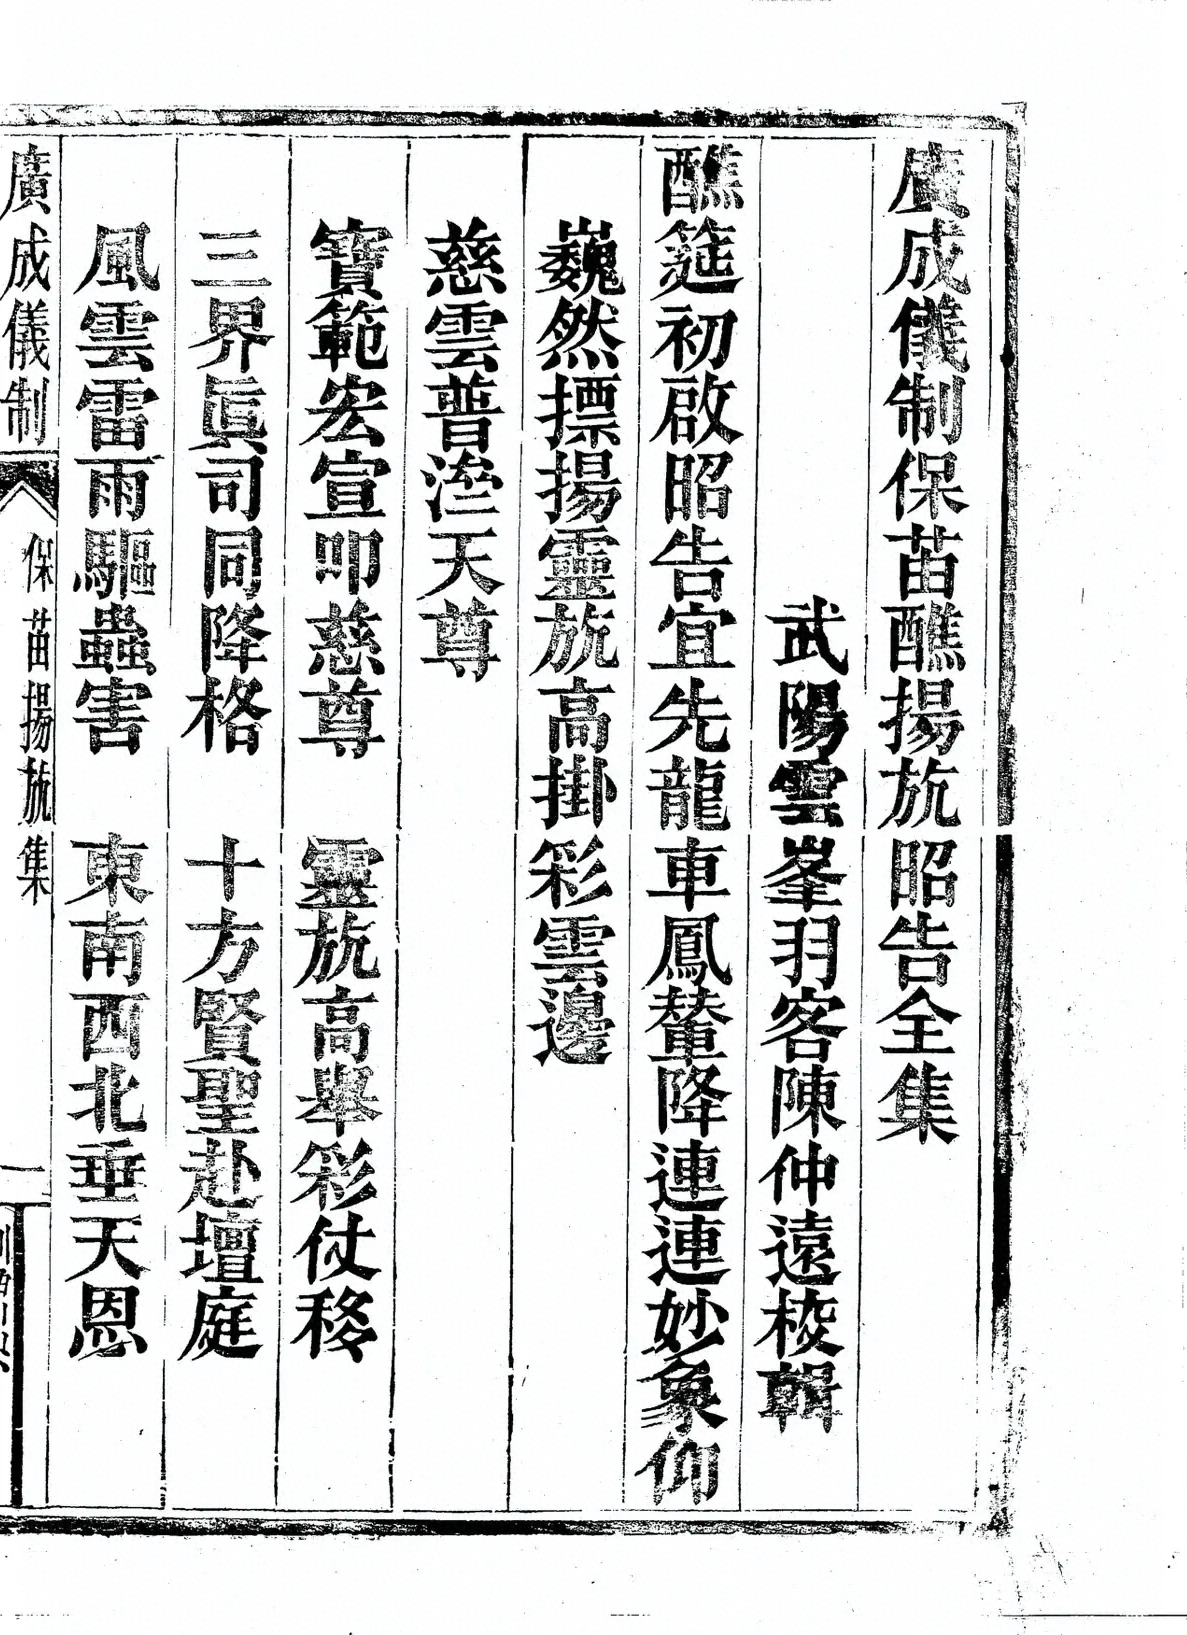 廣成儀制保苗醮揚旂昭告全集
武陽雲峯羽客陳仲遠校輯
醮筵初啟昭告宜先龍車鳳輦降連連妙象仰
巍然摽揚靈旂高掛彩雲邊
慈雲普渰天尊
寶範宏宣叩慈尊　靈旂高舉彩仗移
三界眞司同降格　十方賢聖赴壇庭
風雲雷雨驅蟲害　東南西北垂天恩
廣成儀制　保苗揚旂集　一